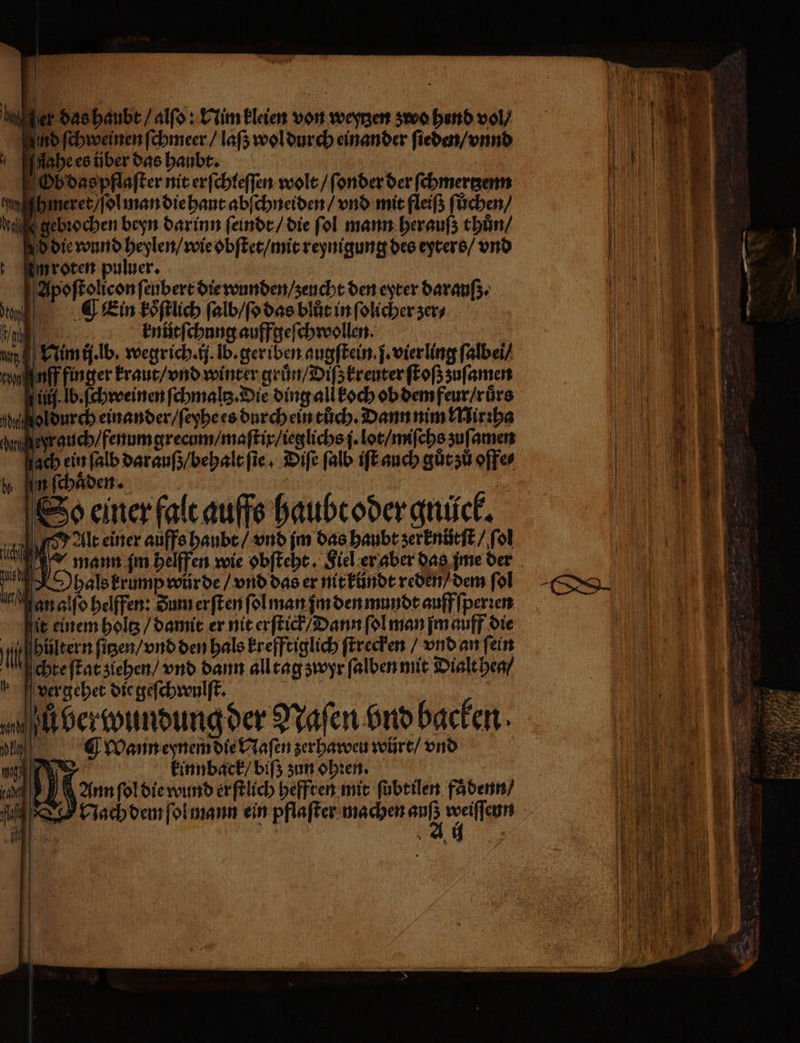 das haubt / alſo: Nim kleien von weytzen zwo hend vol/
ſchweinen ſchmeer / laſz wol durch einander ſieden/vnnd
ſlahe es über das haubt.
Ob das pflaſter nit erſchieſſen wolt / ſonder der ſchmertzenn
ſol man die haut abſchneiden / vnd mit fleiſz ſůchen/
gebꝛochen beyn darinn ſeindt / die ſol mann herauſz thůn/
die wund heylen/wie obſtet/mit reynigung des eyters/ vnd
roten puluer.
Apoſtolicon ſeubert die wunden/zeucht den eyter darauſz.
¶ Ein koͤſtlich ſalb/ſo das blůt in ſolicher zer⸗
knütſchung auffgeſchwollen.
Nim ij.lb. wegrich.ij. lb. geriben augſtein.j. vierling ſalbei/
finger kraut/vnd winter grůn/Diſz kreuter ſtoſz zuſamen
iiij. lb. ſchweinen ſchmaltz. Die ding all koch ob dem feur/růrs
wol durch einander/ſeyhe es durch ein tůch. Dann nim Mirꝛha
weyrauch/fenum grecum/maſtix/ieglichs j. lot/miſchs zuſamen
mach ein ſalb darauſz/behalt ſie. Diſe ſalb iſt auch gůt zů offe⸗
ſchaͤden.
So einer falt auffs haubt oder gnück.
Falt einer auffs haubt / vnd jm das haubt zerknütſt / ſol
mann jm helffen wie obſteht. Fiel er aber das jme der
hals krump würde / vnd das er nit kündt reden/ dem ſol
man alſo helffen: Zum erſten ſol man jm den mundt auff ſperꝛen
mit einem holtz / damit er nit erſtick/Dann ſol man jm auff die
ſchültern ſitzen/vnd den hals krefftiglich ſtrecken / vnd an ſein
rechte ſtat ziehen/ vnd dann all tag zwyr ſalben mit Dialthea/
vergehet die geſchwulſt.
Zů verwundung der Naſen vnd backen.
¶ Wann eynem die Naſen zerhaweu würt/ vnd
kinnback/ biſz zun ohꝛen.
DAnn ſol die wund erſtlich hefften mit ſubtilen faͤdenn/
Nach dem ſol mann ein pflaſter machen auſz weiſſenn
A ij